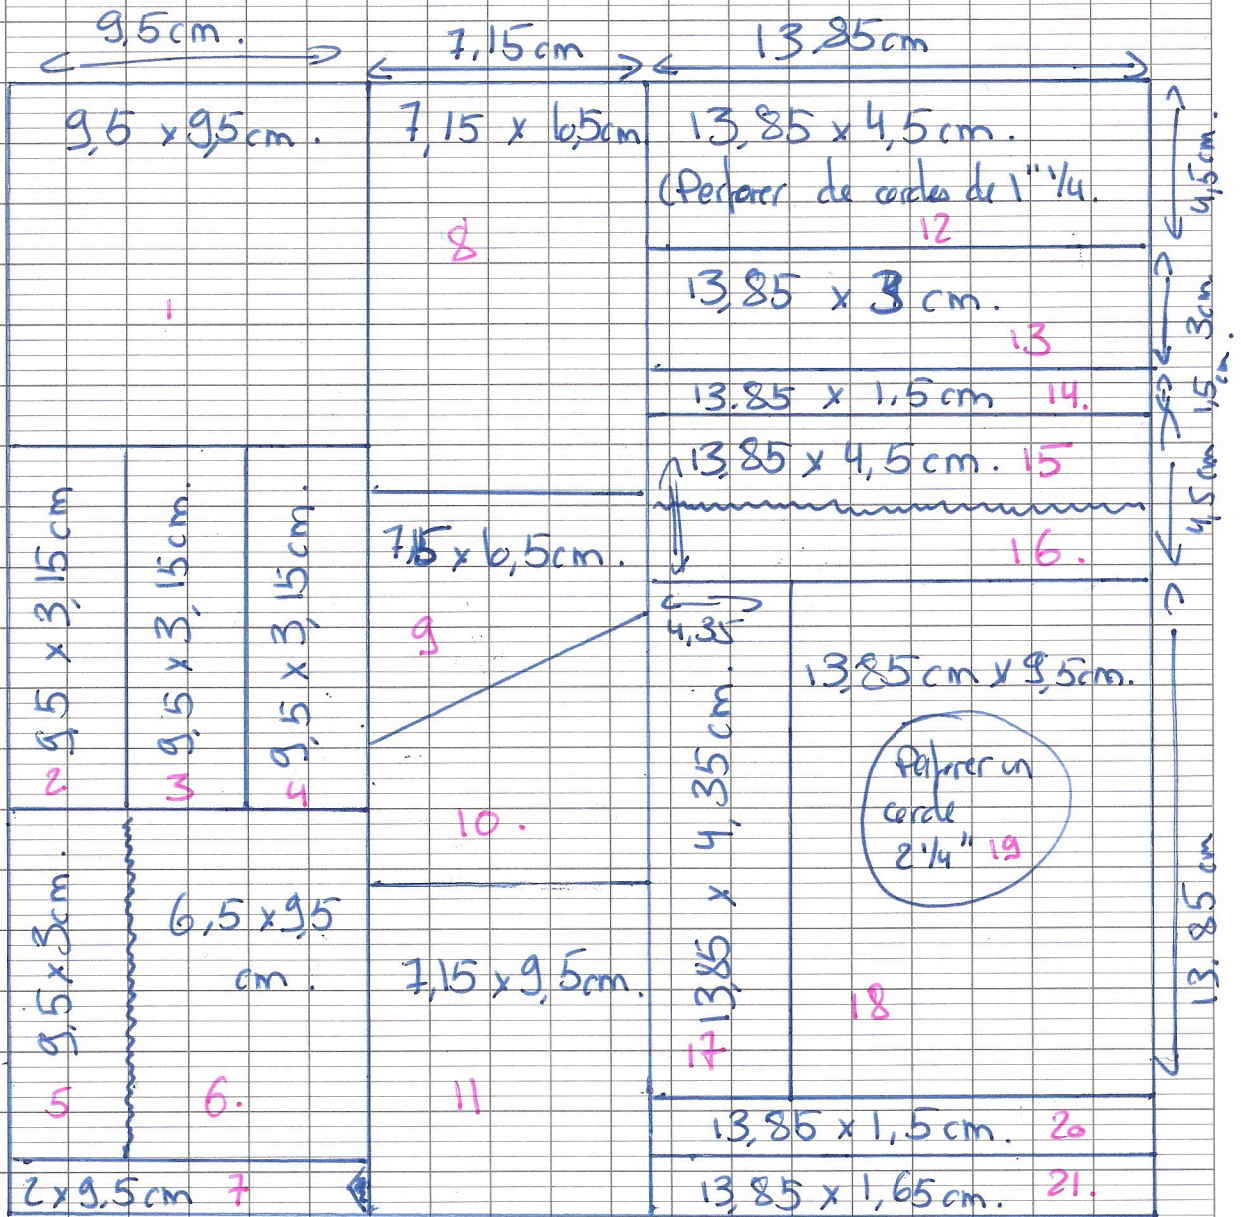 9,5cm.
7,15cm
13.85cm
9,5 x 9,5cm.
1
7,15 x 6,5cm
8
13,85 x 4,5cm.
(Perforer de cercles de 1" 1/4.
12
4,5cm.
13,85 x 3 cm.
13
3cm
13.85 x 1,5cm 14.
1,5cm.
13,85 x 4,5cm. 15
16.
4,5cm
9,5 x 3,15cm
2
9,5 x 3,15cm.
3
9,5 x 3,15cm.
4
7,15 x 6,5cm.
9
10.
4,35
13,85 x 4,35cm.
17
13,85cm x 9,5cm.
Perforer un
cercle
2 1/4" 19
18
13.85cm
9,5 x 3cm.
5
6,5 x 9,5
cm.
6.
7,15 x 9,5cm.
11
13,85 x 1,5cm. 20
2 x 9,5cm 7
13,85 x 1,65cm. 21.